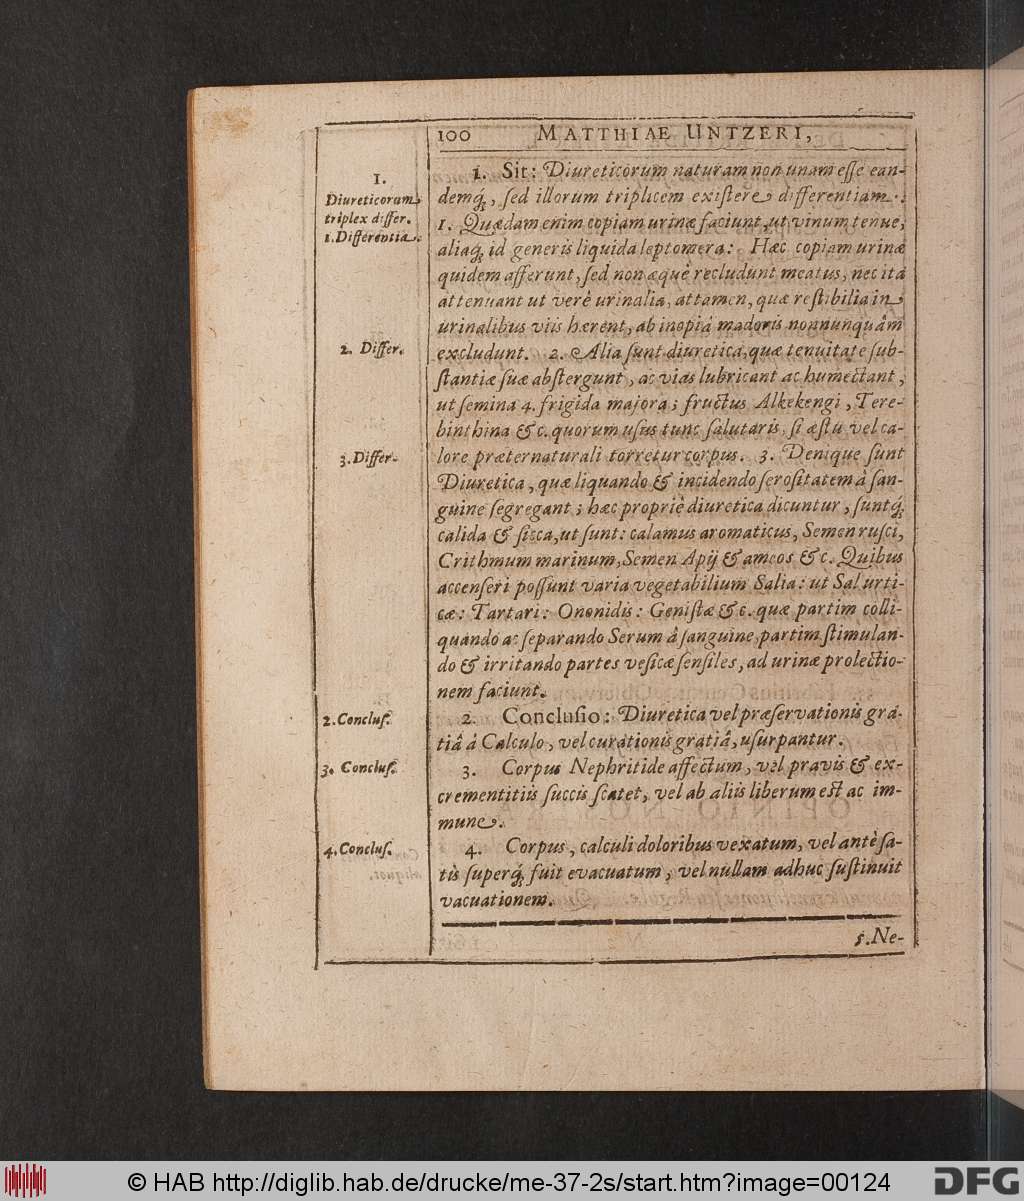 100 MATTHIAE UNTZERI,
1.
Diureticorum
triplex differ.
1. Differentia.
1. Sit: Diureticorum naturam non unam esse ean-
demq́;, sed illorum triplicem existere differentiam.:
1. Quædam enim copiam urinæ faciunt, ut vinum tenue,
aliaq́; id generis liquida leptomera: Hæc copiam urinæ
quidem afferunt, sed non æquè recludunt meatus, nec ità
attenuant ut verè urinalia, attamen, quæ restibilia in
urinalibus viis hærent, ab inopiâ madoris nonnunquàm
2. Differ.
excludunt. 2. Alia sunt diuretica, quæ tenuitate sub-
stantiæ suæ abstergunt, ac vias lubricant ac humectant,
ut semina 4. frigida majora; fructus Alkekengi, Tere-
binthina &c. quorum usus tunc salutaris, si æstu vel ca-
3. Differ.
lore præternaturali torretur corpus. 3. Denique sunt
Diuretica, quæ liquando & incidendo serositatem à san-
guine segregant; hæc propriè diuretica dicuntur, suntq́;
calida & sicca, ut sunt: calamus aromaticus, Semen rusci,
Crithmum marinum, Semen Apij & ameos &c. Quibus
accenseri possunt varia vegetabilium Salia: ut Sal urti-
cæ: Tartari: Ononidis: Genistæ &c. quæ partim colli-
quando ac separando Serum â sanguine, partim stimulan-
do & irritando partes vesicæ sensiles, ad urinæ prolectio-
nem faciunt.
2. Conclus.
2. Conclusio: Diuretica vel præservationis gra-
tiâ á Calculo, vel curationis gratiâ, usurpantur.
3. Conclus.
3. Corpus Nephritide affectum, vel pravis & ex-
crementitiis succis scatet, vel ab aliis liberum est ac im-
mune.
4. Conclus.
4. Corpus, calculi doloribus vexatum, vel antè sa-
tis superq́; fuit evacuatum, vel nullam adhuc sustinuit
vacuationem.
5. Ne-
© HAB http://diglib.hab.de/drucke/me-37-2s/start.htm?image=00124
DFG